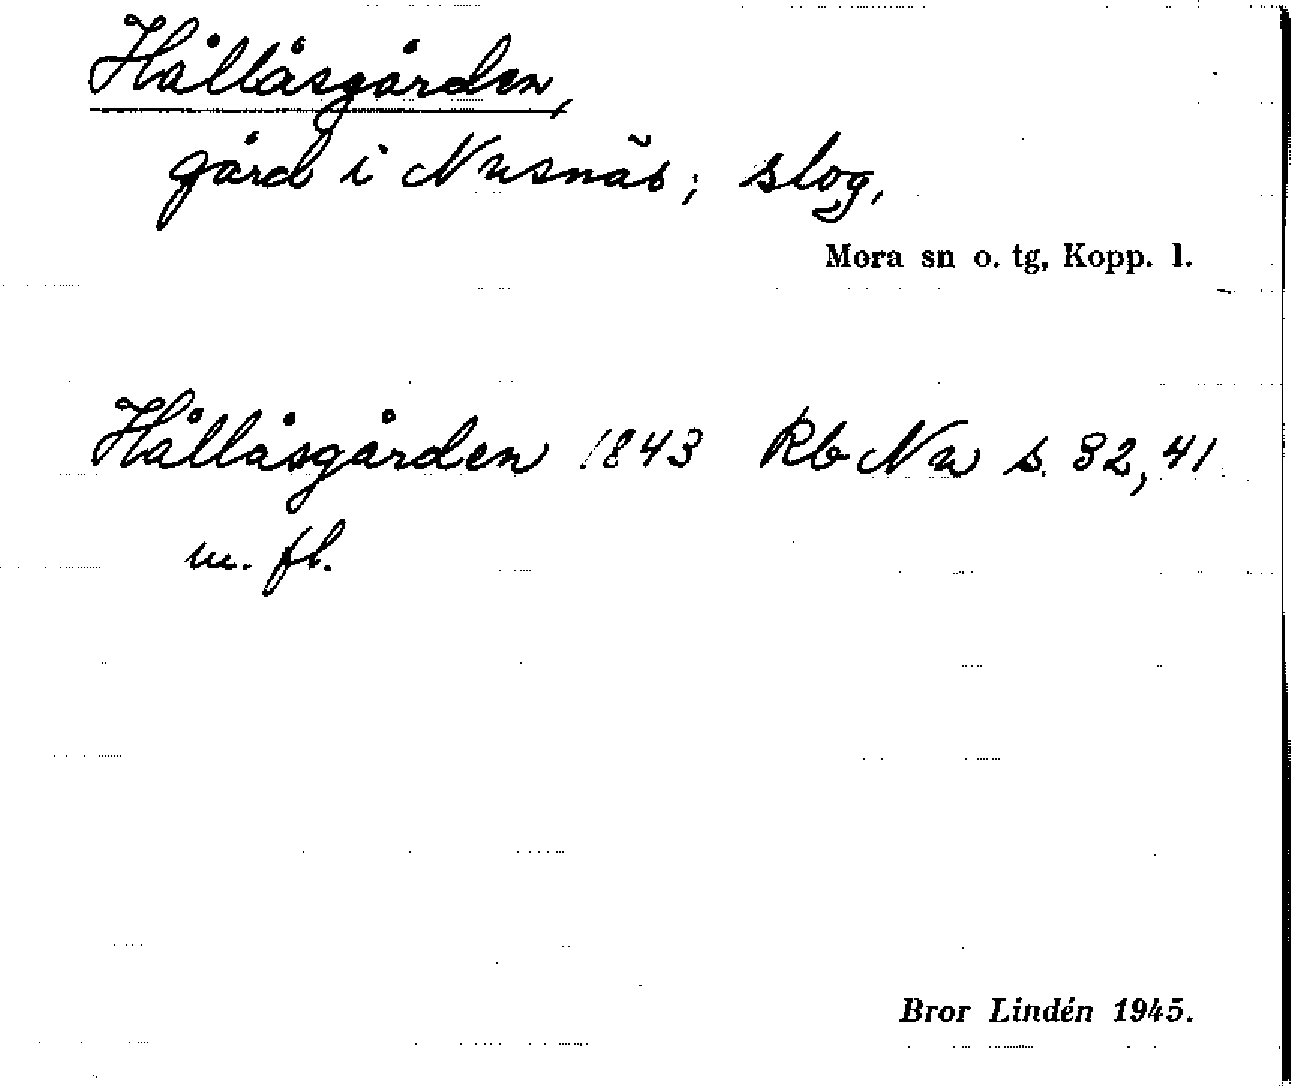 Hållåsgården,
gård i Nusnäs; slog.
Mora sn o. tg, Kopp. l.
Hållåsgården 1843 Rb Nu s. 32, 41
m. fl.
Bror Lindén 1945.